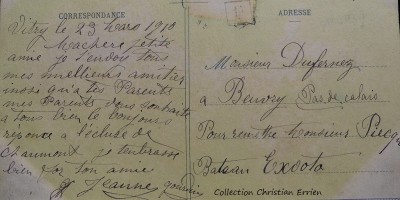 CORRESPONDANCE
Vitry le 23 Mars 1910
Ma chere petite
amie je t'envoy tous
mes meilleurs amities
insi qu'a tes Parents
mes Parents vous souhaite
a tous bien le bonjours
réponce a l'écluse de
Chaumont je t'embrasse
bien for ton amie
Jeanne
ADRESSE
Monsieur Dufernez
a Beuvry Pas de calais
Pour remettre Monsieur
Bateau Excoto
Collection Christian Errien